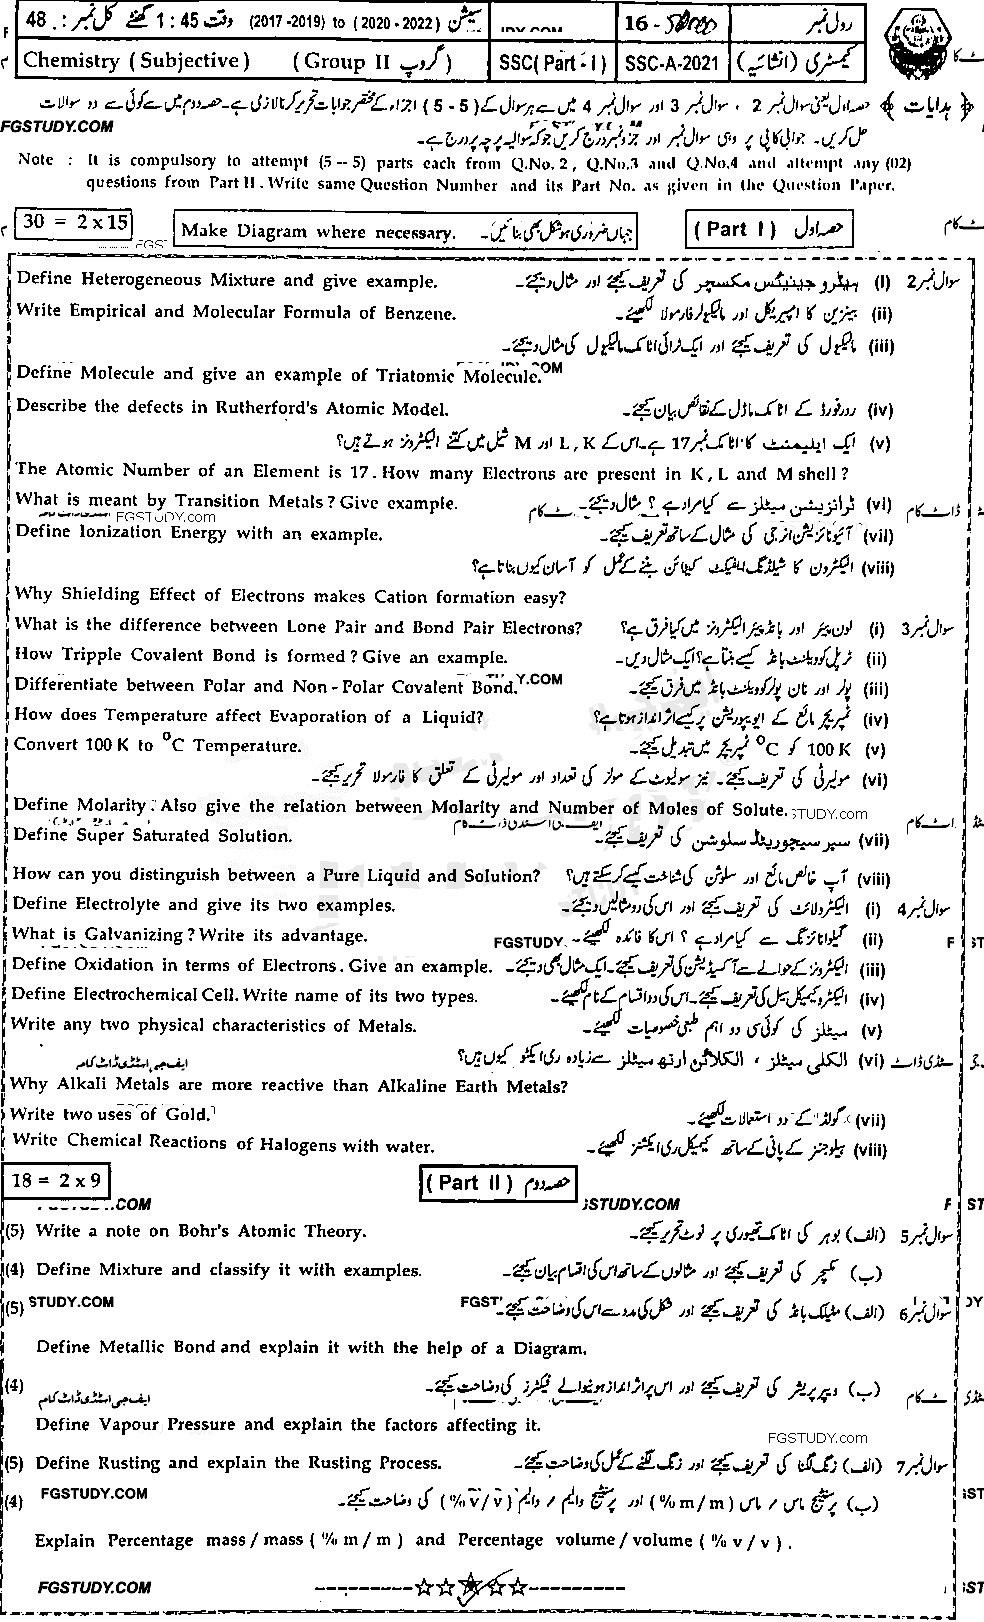 رول نمبر 16- سیشن (2017 -2019) to (2020 - 2022) وقت 1 : 45 گھنٹے کل نمبر : 48
کیمسٹری (انشائیہ) SSC-A-2021 SSC(Part - I) Chemistry (Subjective) (Group II گروپ)
﴿ ہدایات ﴾ حصہ اول یعنی سوال نمبر 2 ، سوال نمبر 3 اور سوال نمبر 4 میں سے ہر سوال کے (5 - 5) اجزاء کے مختصر جوابات تحریر کرنا لازمی ہے۔ حصہ دوم میں سے کوئی سے دو سوالات
FGSTUDY.COM
حل کریں۔ جوابی کاپی پر وہی سوال نمبر اور جز نمبر درج کریں جو کہ سوالیہ پرچہ پر درج ہے۔
Note : It is compulsory to attempt (5 -- 5) parts each from Q.No. 2 , Q.No.3 and Q.No.4 and attempt any (02)
questions from Part II . Write same Question Number and its Part No. as given in the Question Paper.
30 = 2 x 15 Make Diagram where necessary. جہاں ضروری ہو شکل بھی بنائیں۔ (Part I) حصہ اول
Define Heterogeneous Mixture and give example. سوال نمبر 2 (i) ہیٹروجینیئس مکسچر کی تعریف کیجئے اور مثال دیجئے۔
Write Empirical and Molecular Formula of Benzene. (ii) بینزین کا امپیریکل اور مالیکیولر فارمولا لکھیئے۔
(iii) مالیکیول کی تعریف کیجئے اور ایک ٹرائی اٹامک مالیکیول کی مثال دیجئے۔
Define Molecule and give an example of Triatomic Molecule.
Describe the defects in Rutherford's Atomic Model. (iv) ردرفورڈ کے اٹامک ماڈل کے نقائص بیان کیجئے۔
(v) ایک ایلیمنٹ کا اٹامک نمبر 17 ہے۔ اس کے K ، L اور M شیل میں کتنے الیکٹرونز ہوتے ہیں؟
The Atomic Number of an Element is 17 . How many Electrons are present in K , L and M shell ?
What is meant by Transition Metals ? Give example. (vi) ٹرانزیشن میٹلز سے کیا مراد ہے ؟ مثال دیجئے۔
FGSTUDY.com
Define Ionization Energy with an example. (vii) آئیونائزیشن انرجی کی مثال کے ساتھ تعریف کیجئے۔
(viii) الیکٹرون کا شیلڈنگ ایفیکٹ کیٹائن بننے کے عمل کو آسان کیوں بناتا ہے؟
Why Shielding Effect of Electrons makes Cation formation easy?
What is the difference between Lone Pair and Bond Pair Electrons? سوال نمبر 3 (i) لون پیئر اور بانڈ پیئر الیکٹرونز میں کیا فرق ہے؟
How Tripple Covalent Bond is formed ? Give an example. (ii) ٹرپل کوویلنٹ بانڈ کیسے بنتا ہے؟ ایک مثال دیں۔
Differentiate between Polar and Non - Polar Covalent Bond. (iii) پولر اور نان پولر کوویلنٹ بانڈ میں فرق کیجئے۔
How does Temperature affect Evaporation of a Liquid? (iv) ٹمپریچر مائع کے ایوپوریشن پر کیسے اثر انداز ہوتا ہے؟
Convert 100 K to °C Temperature. (v) 100 K کو °C ٹمپریچر میں تبدیل کیجئے۔
(vi) مولیرٹی کی تعریف کیجئے۔ نیز سولیوٹ کے مولز کی تعداد اور مولیرٹی کے تعلق کا فارمولا تحریر کیجئے۔
Define Molarity . Also give the relation between Molarity and Number of Moles of Solute. STUDY.com
Define Super Saturated Solution. (vii) سپر سیچوریٹڈ سلوشن کی تعریف کیجئے۔
How can you distinguish between a Pure Liquid and Solution? (viii) آپ خالص مائع اور سلوشن کی شناخت کیسے کر سکتے ہیں؟
Define Electrolyte and give its two examples. سوال نمبر 4 (i) الیکٹرولائٹ کی تعریف کیجئے اور اس کی دو مثالیں دیجئے۔
What is Galvanizing ? Write its advantage. FGSTUDY. (ii) گیلوانائزنگ سے کیا مراد ہے ؟ اس کا فائدہ لکھیئے۔
Define Oxidation in terms of Electrons . Give an example. (iii) الیکٹرونز کے حوالے سے آکسیڈیشن کی تعریف کیجئے۔ ایک مثال بھی دیجئے۔
Define Electrochemical Cell. Write name of its two types. (iv) الیکٹروکیمیکل سیل کی تعریف کیجئے۔ اس کی دو اقسام کے نام لکھیئے۔
Write any two physical characteristics of Metals. (v) میٹلز کی کوئی سی دو اہم طبعی خصوصیات لکھیئے۔
ایف جی اسٹڈی ڈاٹ کام (vi) الکلی میٹلز ، الکلائن ارتھ میٹلز سے زیادہ ری ایکٹو کیوں ہیں؟
Why Alkali Metals are more reactive than Alkaline Earth Metals?
Write two uses of Gold. (vii) "گولڈ" کے دو استعمالات لکھیئے۔
Write Chemical Reactions of Halogens with water. (viii) ہیلوجنز کے پانی کے ساتھ کیمیکل ری ایکشنز لکھیئے۔
18 = 2 x 9 (Part II) حصہ دوم
.COM GSTUDY.COM F ST
(5) Write a note on Bohr's Atomic Theory. سوال نمبر 5 (الف) بوہر کی اٹامک تھیوری پر نوٹ تحریر کیجئے۔
(4) Define Mixture and classify it with examples. (ب) مکسچر کی تعریف کیجئے اور مثالوں کے ساتھ اس کی اقسام بیان کیجئے۔
(5) STUDY.COM FGST سوال نمبر 6 (الف) میٹلک بانڈ کی تعریف کیجئے اور شکل کی مدد سے اس کی وضاحت کیجئے۔
Define Metallic Bond and explain it with the help of a Diagram.
(4) ایف جی اسٹڈی ڈاٹ کام (ب) ویپر پریشر کی تعریف کیجئے اور اس پر اثر انداز ہونیوالے فیکٹرز کی وضاحت کیجئے۔
Define Vapour Pressure and explain the factors affecting it.
FGSTUDY.com
(5) Define Rusting and explain the Rusting Process. سوال نمبر 7 (الف) زنگ لگنا کی تعریف کیجئے اور زنگ لگنے کے عمل کی وضاحت کیجئے۔
(4) FGSTUDY.COM (ب) پرسنٹیج ماس / ماس (% m / m) اور پرسنٹیج والیم / والیم (% v / v) کی وضاحت کیجئے۔
Explain Percentage mass / mass ( % m / m ) and Percentage volume / volume ( % v / v ) .
FGSTUDY.COM ----------☆☆★☆☆----------